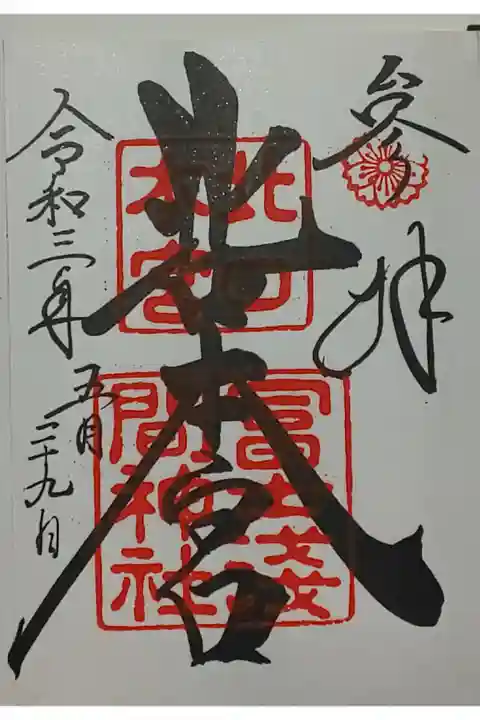 参拝
北口本宮
北口
本宮
冨士淺
間神社
令和三年
五月
二十九日